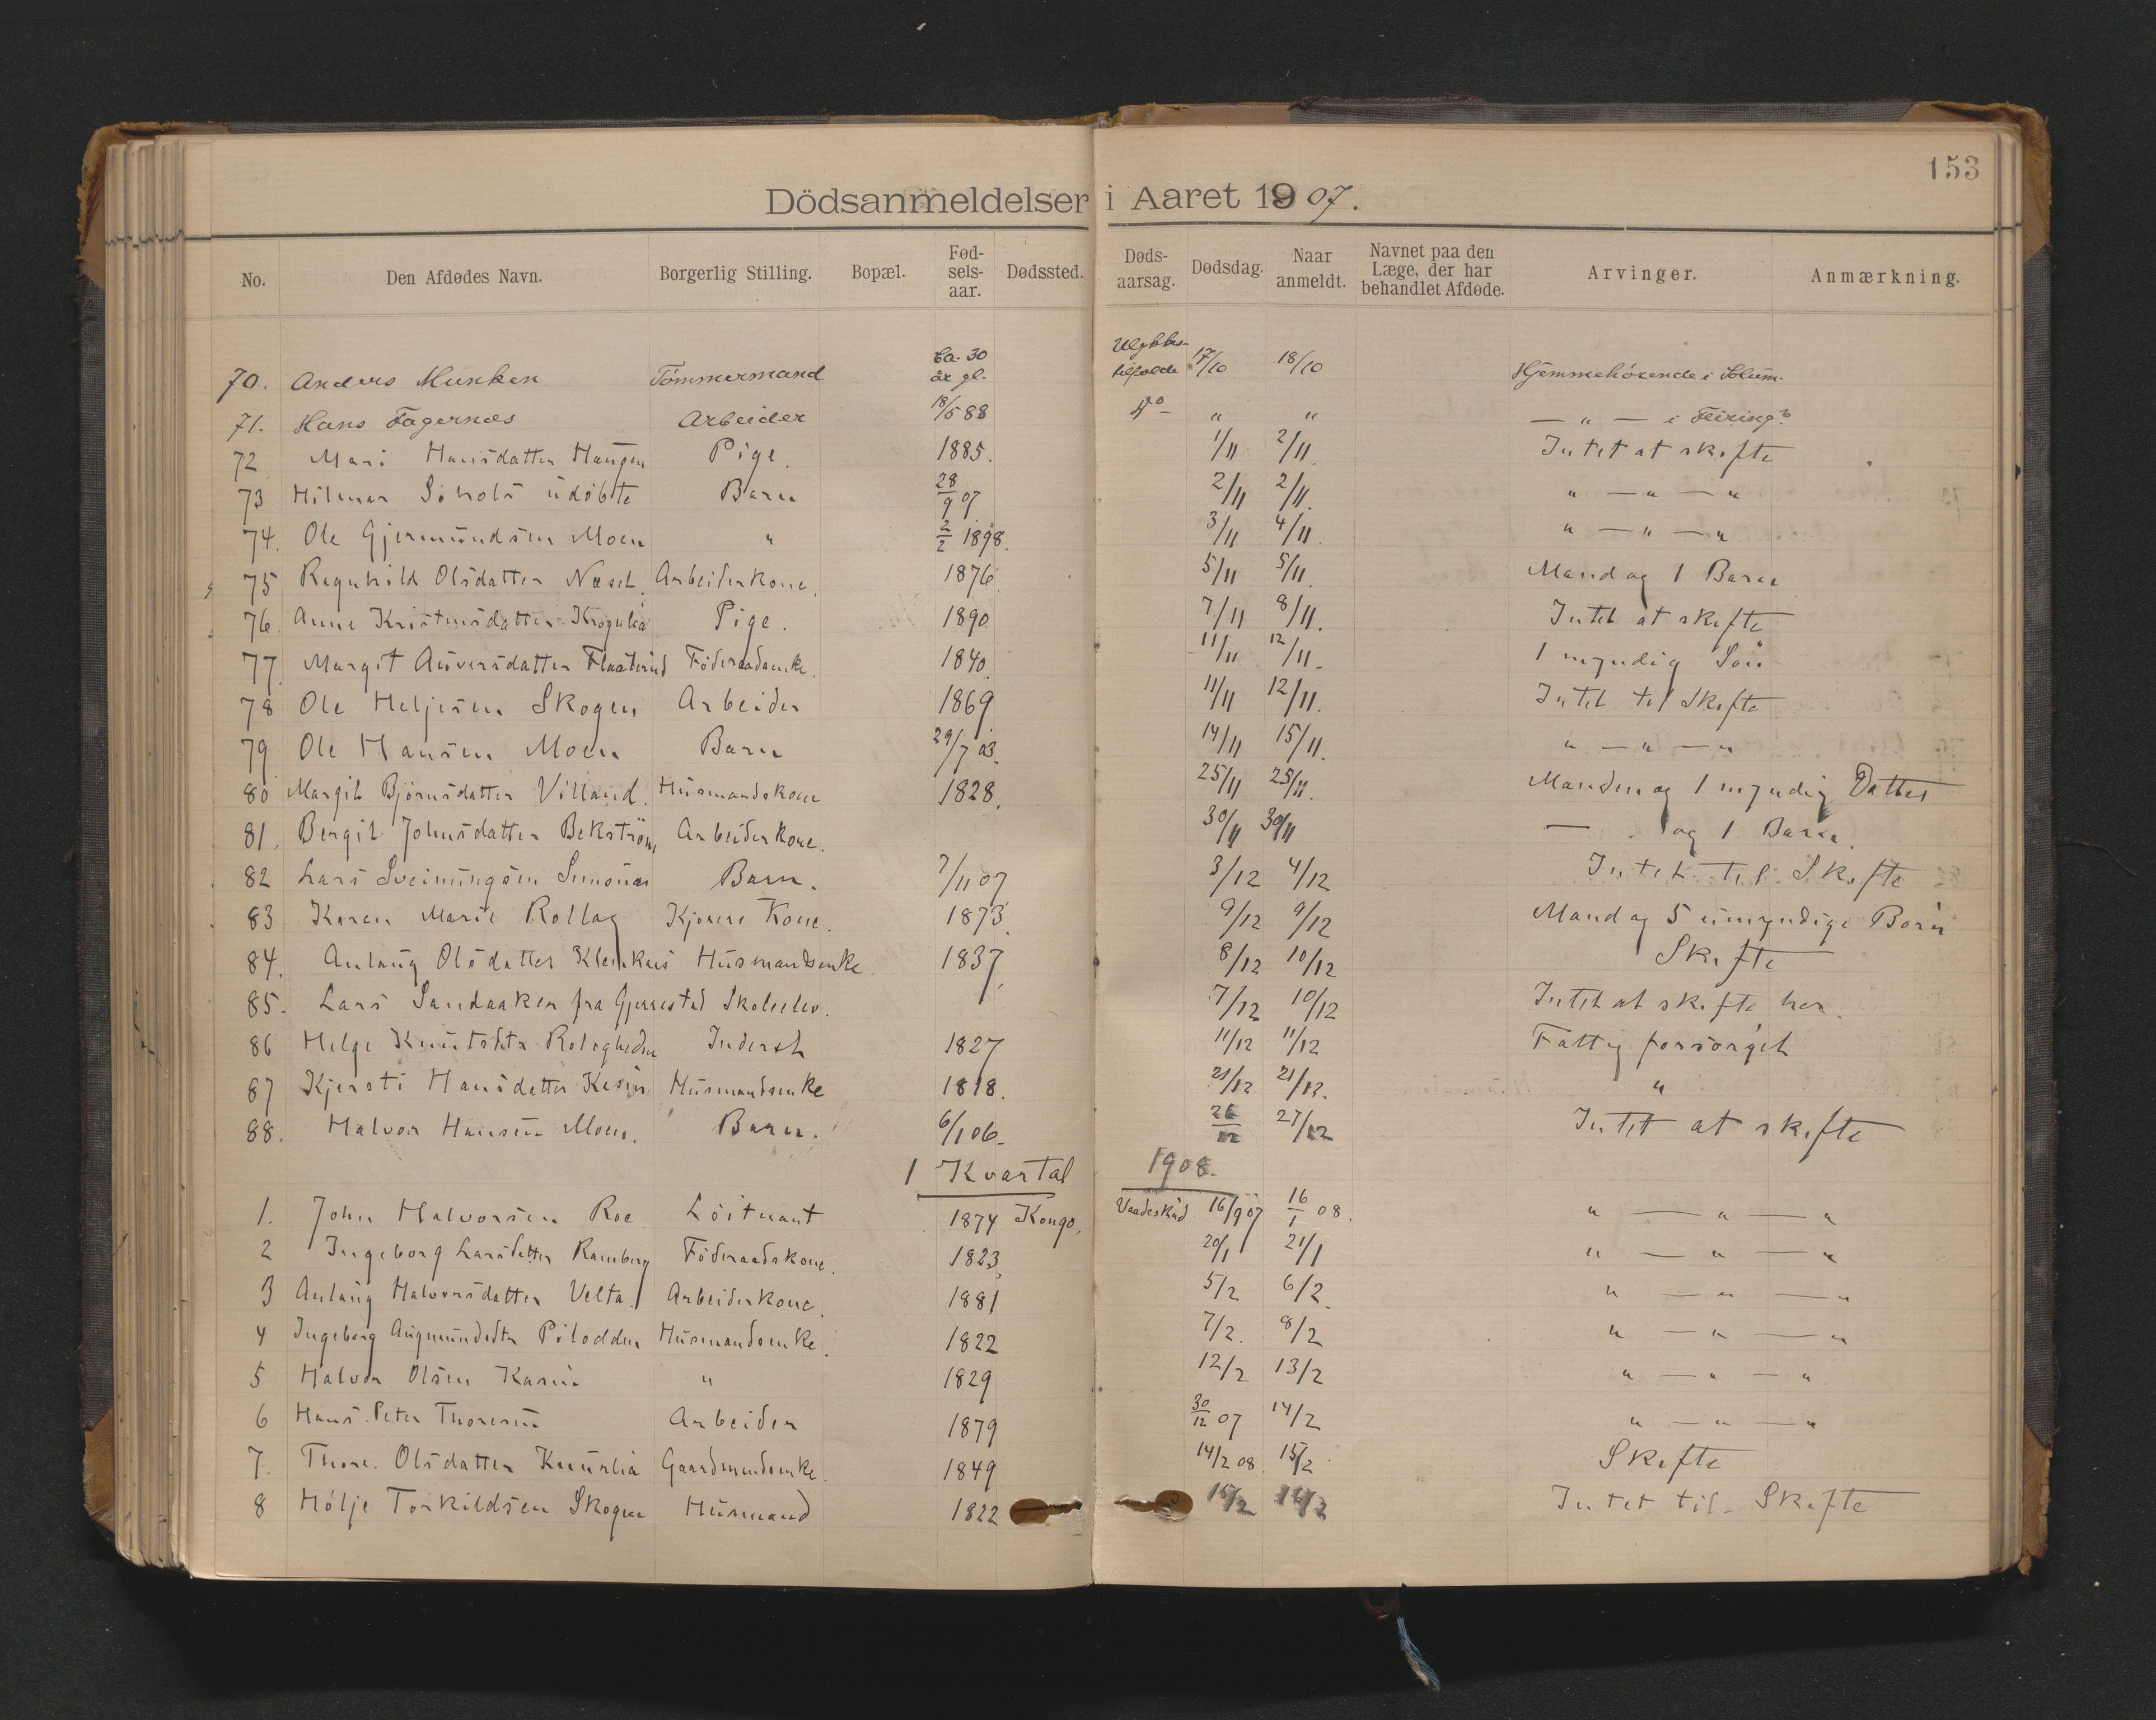 153
Dödsanmeldelser i Aaret 1907.
No. Den Afdødes Navn. Borgerlig Stilling. Bopæl. Fød-sels-aar. Dødssted. Døds-aarsag. Dødsdag. Naar anmeldt. Navnet paa den Læge, der har behandlet Afdøde. Arvinger. Anmærkning.
70. Anders Munken Tømmermand Ca. 30 år gl. Ulykkes-tilfælde 17/10 18/10 Hjemmehörende i Solum.
71. Hans Fagernæs Arbeider 18/5 88 Do " " — " — i Feiring?
72 Mari Hansdatter Haugen Pige. 1885. 1/11 2/11. Intet at skifte
73 Hilmar udöbte Barn 28/9 07 2/11 2/11. " — " — "
74. Ole Gjermundsen Moen " 2/2 1898. 3/11 4/11. " — " — "
75 Ragnhild Olsdatter Næset. Arbeiderkone. 1876. 5/11 5/11. Mand og 1 Barn
76. Anne Kristensdatter Pige. 1890. 7/11 8/11. Intet at skifte
77. Margit Flaaterud Föderaadsenke. 1840. 11/11 12/11. 1 myndig Sön
78 Ole Heljesen Skogen Arbeider 1869 11/11 12/11. Intet til Skifte
79 Ole Hansen Moen Barn 29/7 03. 14/11 15/11. " — " — "
80 Margit Björnsdatter Villand. Husmandskone 1828. 25/11 25/11. Manden og 1 myndig Datter
81. Bergit Johnsdatter Bekström Arbeiderkone. 30/11 30/11 — og 1 Barn.
82 Lars Sveinungsen Barn. 7/11 07 3/12 4/12 Intet til Skifte
83 Karen Marie Rollag Kjörere Kone. 1873. 9/12 9/12 Mand og 5 umyndige Börn
84. Anlaug Olsdatter Husmandsenke 1837. 8/12 10/12 Skifte
85. Lars Sandaaker fra Gjerrestad Skoleelev. 7/12 10/12 Intet at skifte her
86 Helge Knutsdtr Inderst 1827 11/12 11/12 Fattig forsörget
87 Kjersti Hansdatter Husmandsenke 1818. 21/12 21/12. "
88. Halvor Hansen Moen. Barn. 6/1 06. 26/12 27/12 Intet at skifte
1 Kvartal 1908.
1. John Halvorsen Roe Löitnant 1874 Kongo, Vaadeskud 16/9 07 16/1 08. " — " — "
2 Ingeborg Larsdatter Ramberg Föderaadskone. 1823, 20/1 21/1 " — " — "
3 Anlaug Halvorsdatter Velta. Arbeiderkone. 1881 5/2 6/2. " — " — "
4 Ingeborg Augmundsdtr Pilodden Husmandsenke. 1822 7/2. 8/2 " — " — "
5 Halvor Olsen Kasin " 1829 12/2 13/2 " — " — "
6 Hans Peter Thoresen Arbeider 1879 30/12 07 14/2 " — " — "
7. Thore Olsdatter Gaardmandsenke. 1849 14/2 08. 15/2 Skifte
8 Hölje Torkildsen Skogen Husmand 1822 15/2 16/2 Intet til Skifte